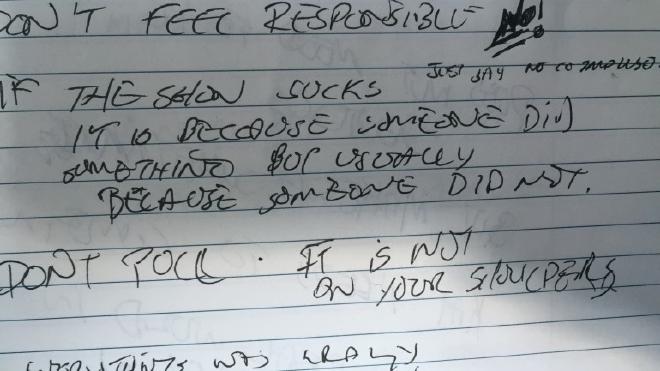 DON'T FEEL RESPONSIBLE NO!
JUST SAY NO
IF THE SHOW SUCKS
IT IS BECAUSE SOMEONE DID
SOMETHING BUT USUALLY
BECAUSE SOMEONE DID NOT.
DONT. IT IS NOT
ON YOUR SHOULDERS
WAS